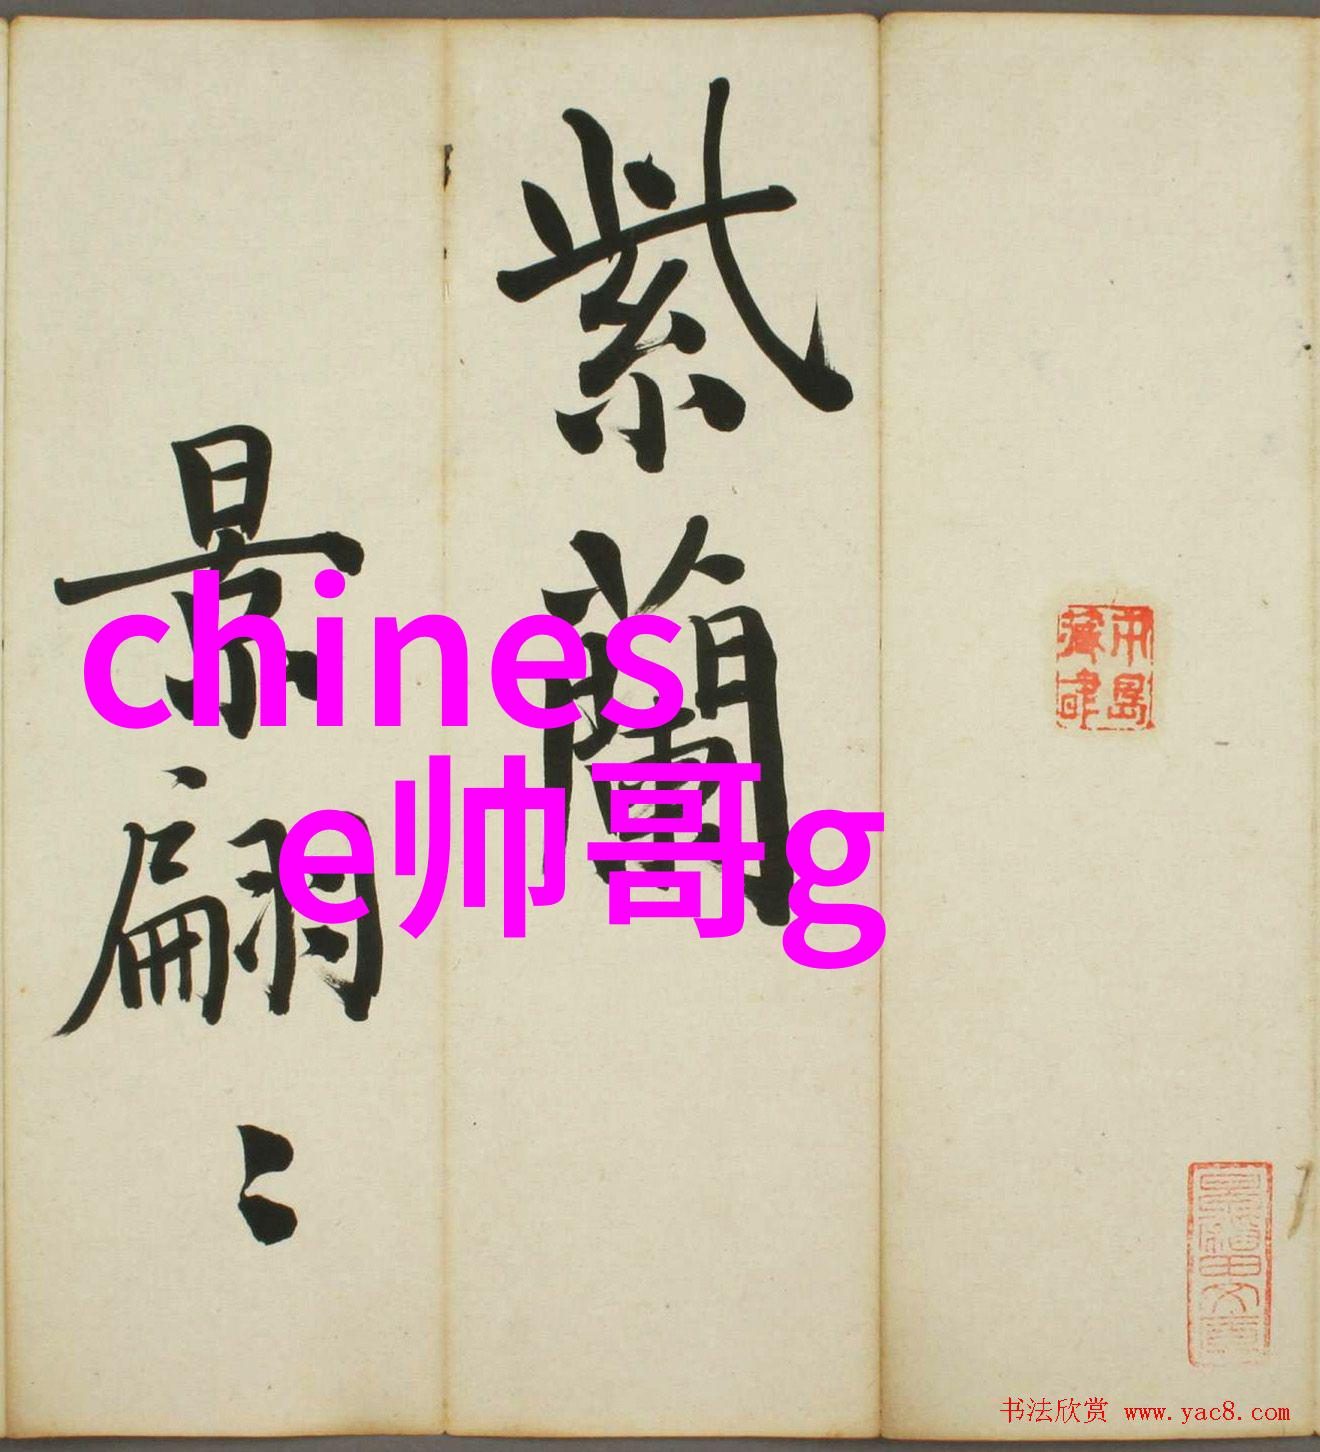 紫蘭
景翩
翩
chines
e帅哥g
书法欣赏 www.yac8.com